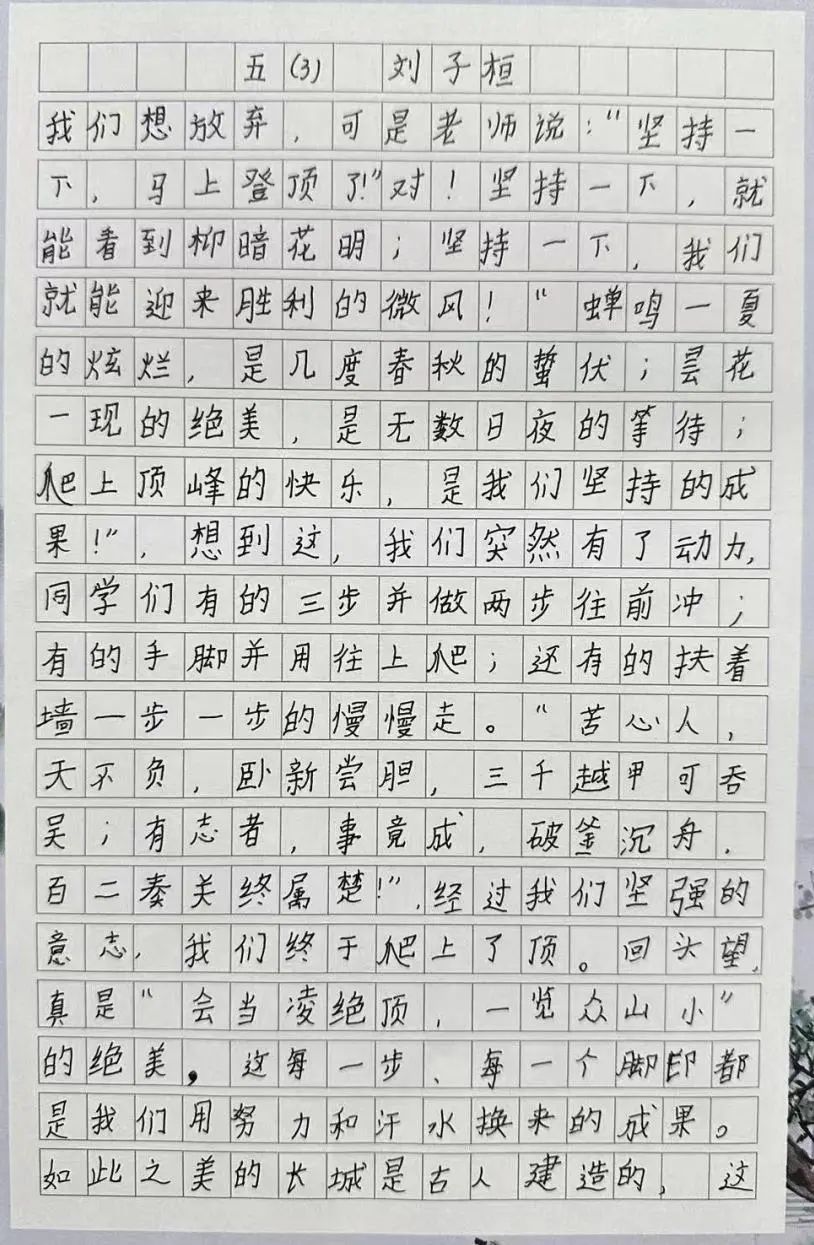 五(3) 刘子桓
我们想放弃,可是老师说:“坚持一
下,马上登顶了!”对!坚持一下,就
能看到柳暗花明;坚持一下,我们
就能迎来胜利的微风!“蝉鸣一夏
的炫烂,是几度春秋的蛰伏;昙花
一现的绝美,是无数日夜的等待;
爬上顶峰的快乐,是我们坚持的成
果!”,想到这,我们突然有了动力,
同学们有的三步并做两步往前冲;
有的手脚并用往上爬;还有的扶着
墙一步一步的慢慢走。“苦心人,
天不负,卧新尝胆,三千越甲可吞
吴;有志者,事竟成,破釜沉舟,
百二秦关终属楚!”,经过我们坚强的
意志,我们终于爬上了顶。回头望,
真是“会当凌绝顶,一览众山小”
的绝美,这每一步、每一个脚印都
是我们用努力和汗水换来的成果。
如此之美的长城是古人建造的,这